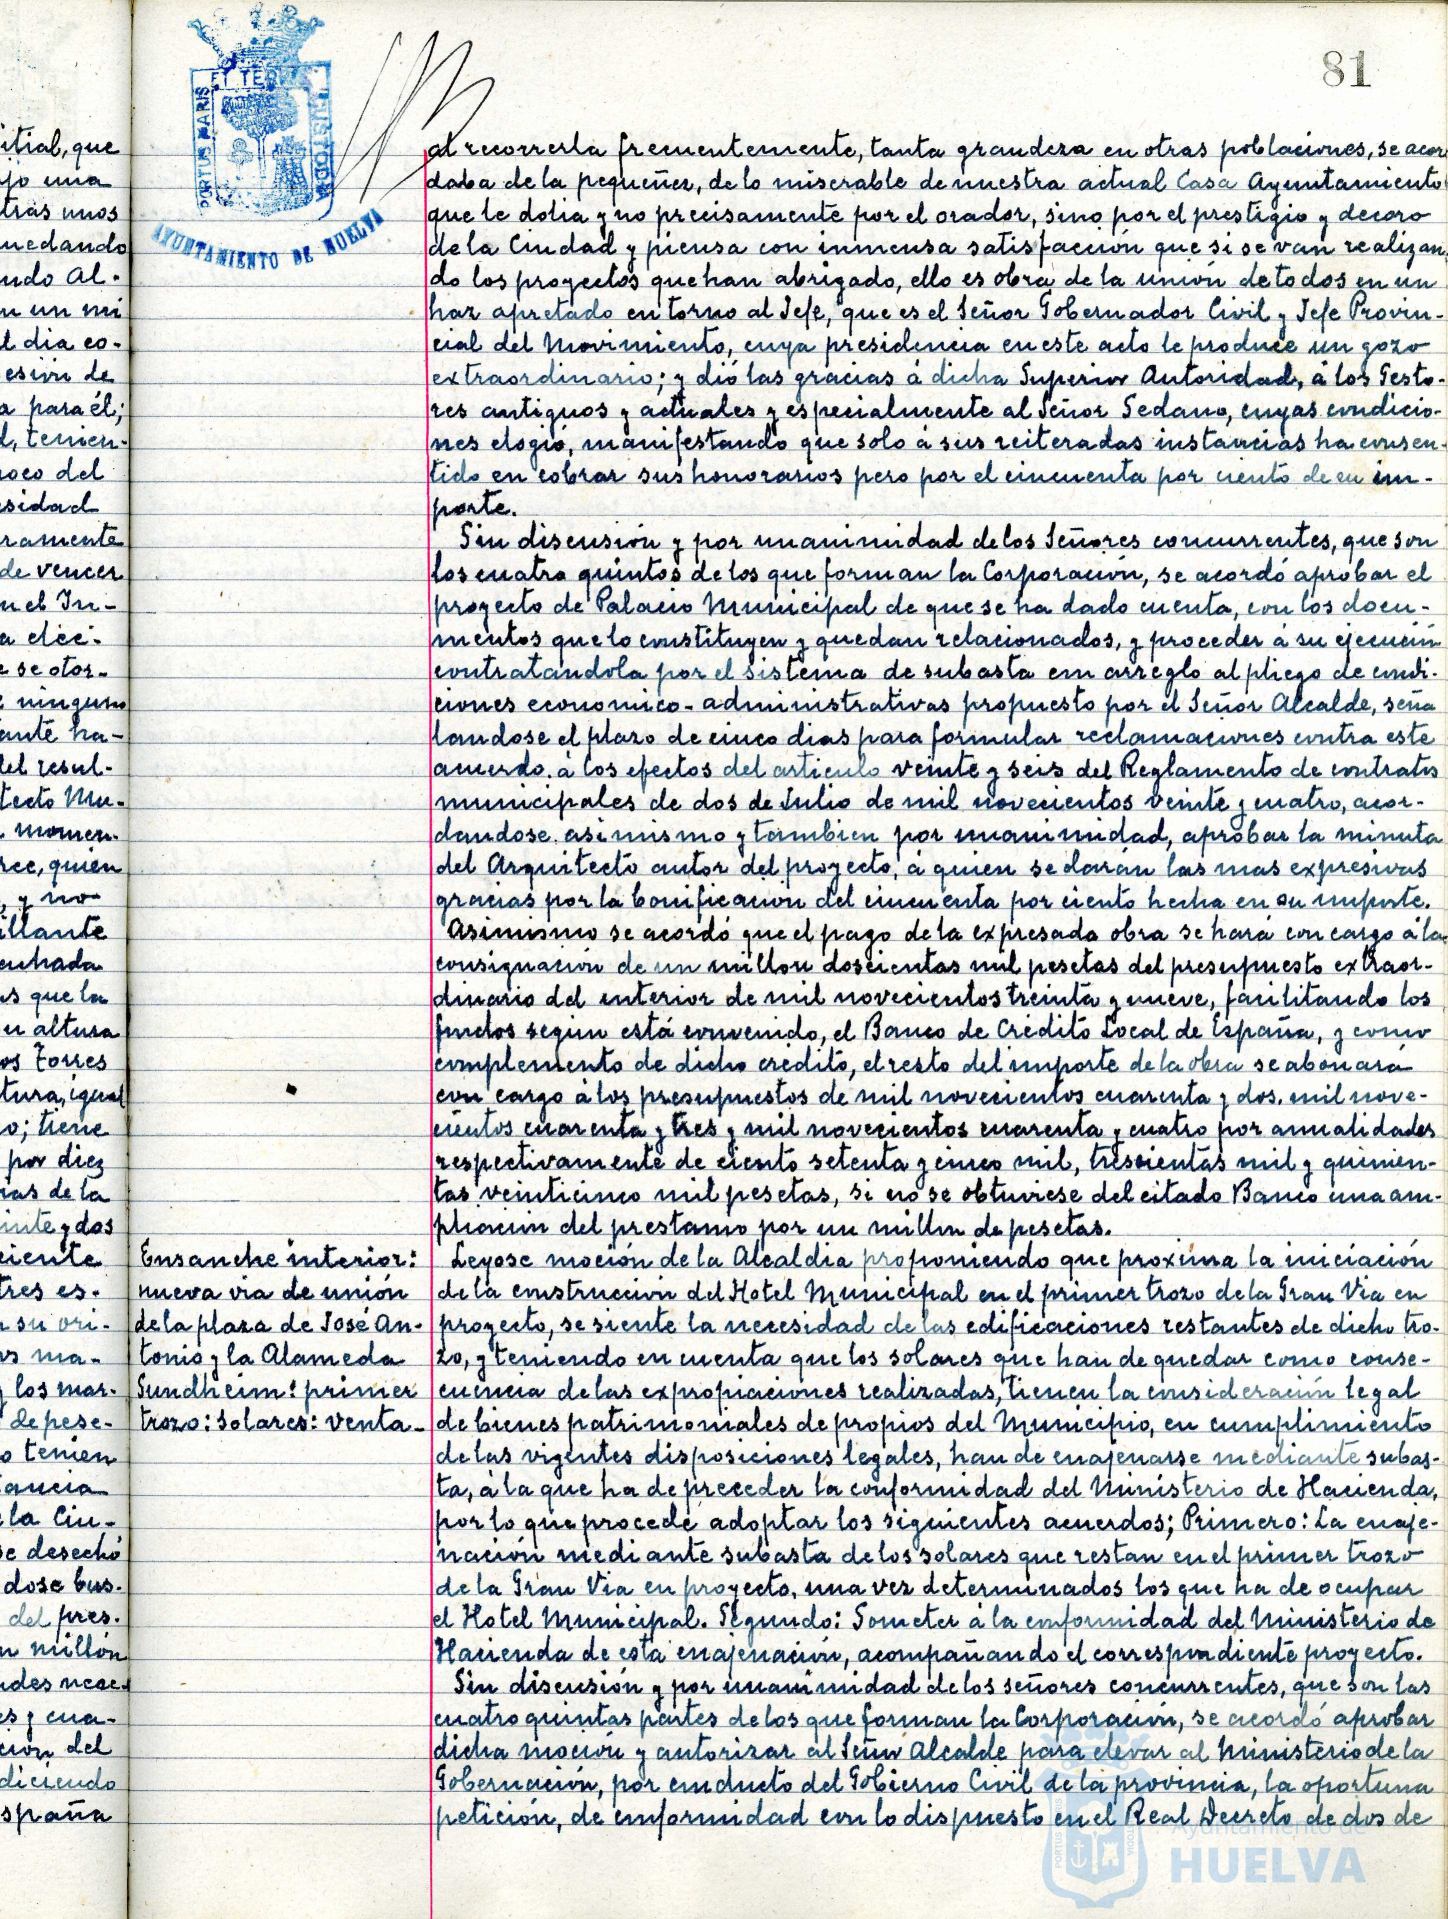 81
PORTUS MARIS ET TERRAE CUSTODIA
AYUNTAMIENTO DE HUELVA
itial, que
ajo una
tras unos
uedando
ndo Al-
n un mi
l dia co-
esión de
a para él;
d, tenien-
oco del
esidad
ramente
de vencer
n el In-
a deci-
e se otor-
e ninguno
ante ha-
del resul-
tecto Mu-
momen-
ree, quién
, y no
illante
enhada
s que la
u altura
os Torres
tura, igual
o; tiene
por diez
ias de la
inte y dos
ciente
tres es-
n su ori-
os ma-
y los mar-
de pese-
o tenien
tancia
la Ciu-
se desechó
dose bus-
del pres-
n millón
ades nece-
es y cua-
ción del
diciendo
spaña
al recorrerla frecuentemente, tanta grandeza en otras poblaciones, se acor
daba de la pequeñez, de lo miserable de nuestra actual Casa Ayuntamiento
que le dolia y no precisamente por el orador, sino por el prestigio y decoro
de la Ciudad y piensa con inmensa satisfacción que si se van realizan
do los proyectos que han abrigado, ello es obra de la unión de todos en un
haz apretado en torno al Jefe, que es el Señor Gobernador Civil y Jefe Provin-
cial del Movimiento, cuya presidencia en este acto le produce un gozo
extraordinario; y dió las gracias á dicha Superior Autoridad, á los Gesto-
res antiguos y actuales y especialmente al Señor Sedano, cuyas condicio-
nes elogió, manifestando que solo á sus reiteradas instancias ha consen-
tido en cobrar sus honorarios pero por el cincuenta por ciento de su im-
porte.
Sin discusión y por unanimidad de los Señores concurrentes, que son
los cuatro quintos de los que forman la Corporación, se acordó aprobar el
proyecto de Palacio Municipal de que se ha dado cuenta, con los docu-
mentos que lo constituyen y quedan relacionados, y proceder á su ejecución
contratandola por el sistema de subasta con arreglo al pliego de condi-
ciones economico-administrativas propuesto por el Señor Alcalde, seña
landose el plazo de cinco dias para formular reclamaciones contra este
acuerdo. á los efectos del articulo veinte y seis del Reglamento de contratos
municipales de dos de Julio de mil novecientos veinte y cuatro, acor-
dandose. asi mismo y tambien por unanimidad, aprobar la minuta
del Arquitecto autor del proyecto, á quien se darán las mas expresivas
gracias por la bonificación del cincuenta por ciento hecha en su importe.
Asimismo se acordó que el pago de la expresada obra se hará con cargo á la
consignación de un millon doscientas mil pesetas del presupuesto extraor-
dinario del interior de mil novecientos treinta y nueve, facilitando los
fondos según está convenido, el Banco de Crédito Local de España, y como
complemento de dicho crédito, el resto del importe de la obra se abonará
con cargo á los presupuestos de mil novecientos cuarenta y dos. mil nove-
cientos cuarenta y tres y mil novecientos cuarenta y cuatro por anualidades
respectivamente de ciento setenta y cinco mil, trescientas mil y quinien-
tas veinticinco mil pesetas, si no se obtuviese del citado Banco una am-
pliación del prestamo por un millon de pesetas.
Ensanche interior:
nueva via de unión
de la plaza de José An-
tonio y la Alameda
Sundheim: primer
trozo: Solares: venta-
Leyose moción de la Alcaldia proponiendo que proxima la iniciación
de la construcción del Hotel Municipal en el primer trozo de la Gran Via en
proyecto, se siente la necesidad de las edificaciones restantes de dicho tro-
zo, y teniendo en cuenta que los solares que han de quedar como conse-
cuencia de las expropiaciones realizadas, tienen la consideración legal
de bienes patrimoniales de propios del Municipio, en cumplimiento
de las vigentes disposiciones legales, han de enajenarse mediante subas-
ta, á la que ha de preceder la conformidad del Ministerio de Hacienda,
por lo que procede adoptar los siguientes acuerdos; Primero: La enaje-
nación mediante subasta de los solares que restan en el primer trozo
de la Gran Via en proyecto, una vez determinados los que ha de ocupar
el Hotel Municipal. Segundo: Someter á la conformidad del Ministerio de
Hacienda de esta enajenación, acompañando el correspondiente proyecto.
Sin discusión y por unanimidad de los señores concurrentes, que son las
cuatro quintas partes de los que forman la Corporación, se acordó aprobar
dicha moción y autorizar al Señor Alcalde para elevar al Ministerio de la
Gobernación, por conducto del Gobierno Civil de la provincia, la oportuna
petición, de conformidad con lo dispuesto en el Real Decreto de dos de
Ayuntamiento de
HUELVA